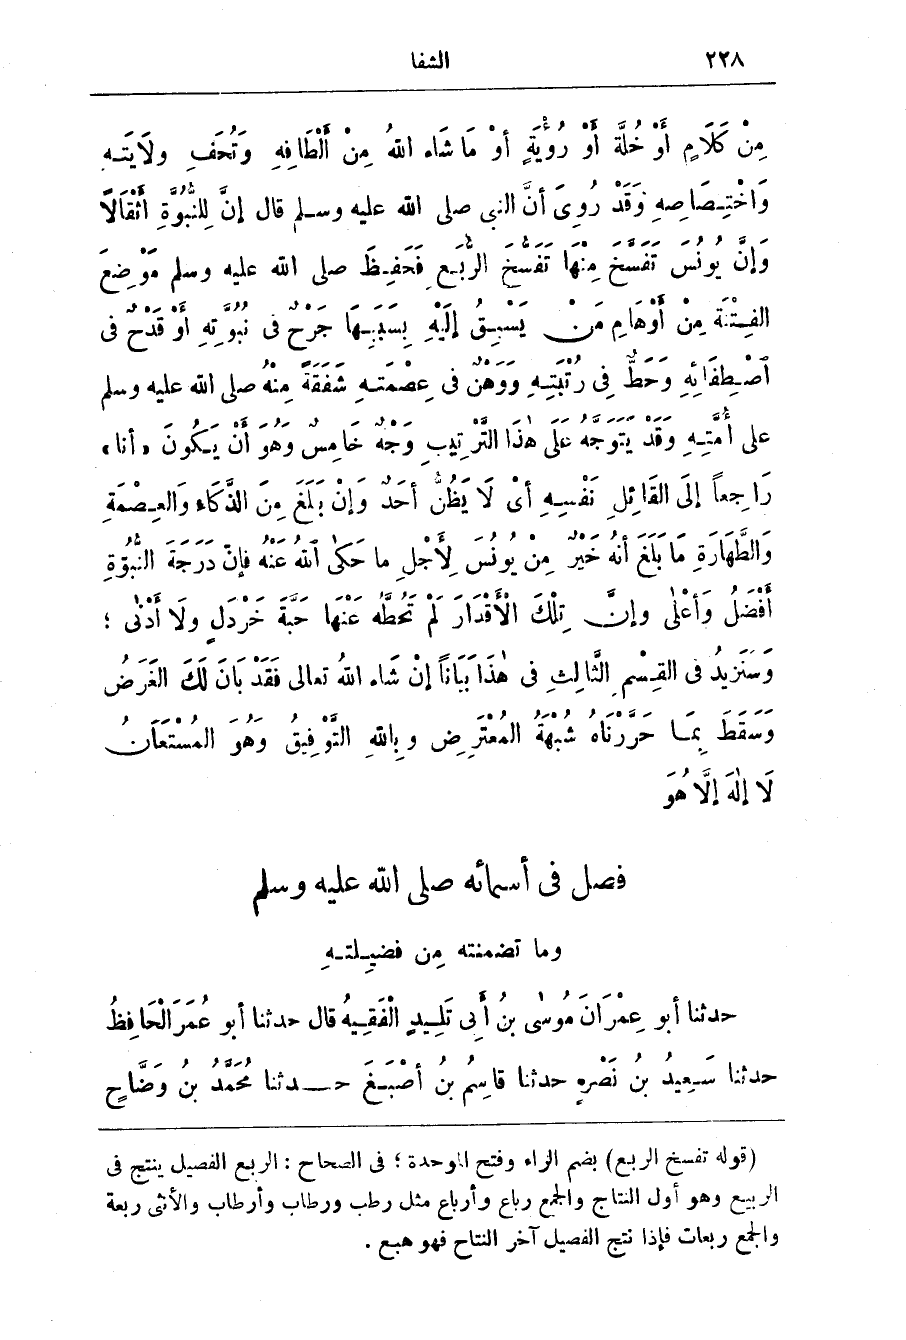 ٢٢٨ الشفا
مِنْ كَلَامٍ أَوْ خُلَّةٍ أَوْ رُؤْيَةٍ أوْ مَا شَاء اللهُ مِنْ أَلْطَافِهِ وَتُحَفِ ولَايَتِهِ
وَاخْتِصَاصِهِ وَقَدْ رُوِىَ أنَّ النبى صلى الله عليه وسلم قال إنَّ لِلنُّبُوَّةِ أَثْقَالًا
وَإنَّ يُونُسَ تَفَسَّخَ مِنْهَا تَفَسُّخَ الرُّبَعِ فَحَفِظَ صلى الله عليه وسلم مَوْضِعَ
الفِتْنَةِ مِنْ أوْهَامِ مَنْ يَسْبِقُ إلَيْهِ بِسَبَبِهَا جَرْحٌ فى نُبُوَّتِهِ أوْ قَدْحٌ فى
اصْطِفَائِهِ وَحَطٌّ فِى رُتْبَتِهِ وَوَهْنٌ فى عِصْمَتِهِ شَفَقَةً مِنْهُ صلى الله عليه وسلم
على أُمَّتِهِ وَقَدْ يَتَوَجَّهُ عَلَى هٰذَا التَّرْتِيبِ وَجْهٌ خَامِسٌ وَهُوَ أَنْ يَكُونَ «أنا»
رَاجِعاً إلَى القَائِلِ نَفْسِهِ أىْ لَا يَظُنُّ أحَدٌ وَإنْ بَلَغَ مِنَ الذَّكَاءِ وَالعِصْمَةِ
وَالطَّهَارَةِ مَا بَلَغَ أنهُ خَيْرٌ مِنْ يُونُسَ لِأَجْلِ ما حَكَى اللهُ عَنْهُ فإنّ دَرَجَةَ النُّبُوّةِ
أَفْضَلُ وَأعْلٰى وإنَّ تِلْكَ الْأَقْدَارَ لَمْ تَحُطَّهُ عَنْهَا حَبَّةَ خَرْدَلٍ ولَا أَدْنٰى ؛
وَسَنَزِيدُ فى القِسْمِ الثَّالِثِ فى هٰذَا بَيَاناً إنْ شَاء اللهُ تعالى فَقَدْ بَانَ لَكَ الغَرَضُ
وَسَقَطَ بِمَا حَرَّرْنَاهُ شُبْهَةُ المُعْتَرِضِ وبِاللهِ التَّوْفِيقُ وَهُوَ المُسْتَعَانُ
لَا إلٰهَ إلَّا هُوَ
فصل فى أسمائه صلى الله عليه وسلم
وما تضمنته مِن فضيلتهِ
حدثنا أبو عِمْرَانَ مُوسٰى بنُ أَبِى تَلِيدٍ الْفَقِيهُ قال حدثنا أبو عُمَرَ الْحَافِظُ
حدثنا سَعِيدُ بنُ نَصْرٍ حدثنا قَاسِمُ بنُ أَصْبَغَ حدثنا مُحَمَّدُ بنُ وَضَّاحٍ
(قوله تفسخ الربع) بضم الراء وفتح الموحدة ؛ فى الصحاح : الربع الفصيل ينتج فى
الربيع وهو أول النتاج والجمع رباع وأرباع مثل رطب ورطاب وأرطاب والأنثى ربعة
والجمع ربعات فإذا نتج الفصيل آخر النتاج فهو هبع .